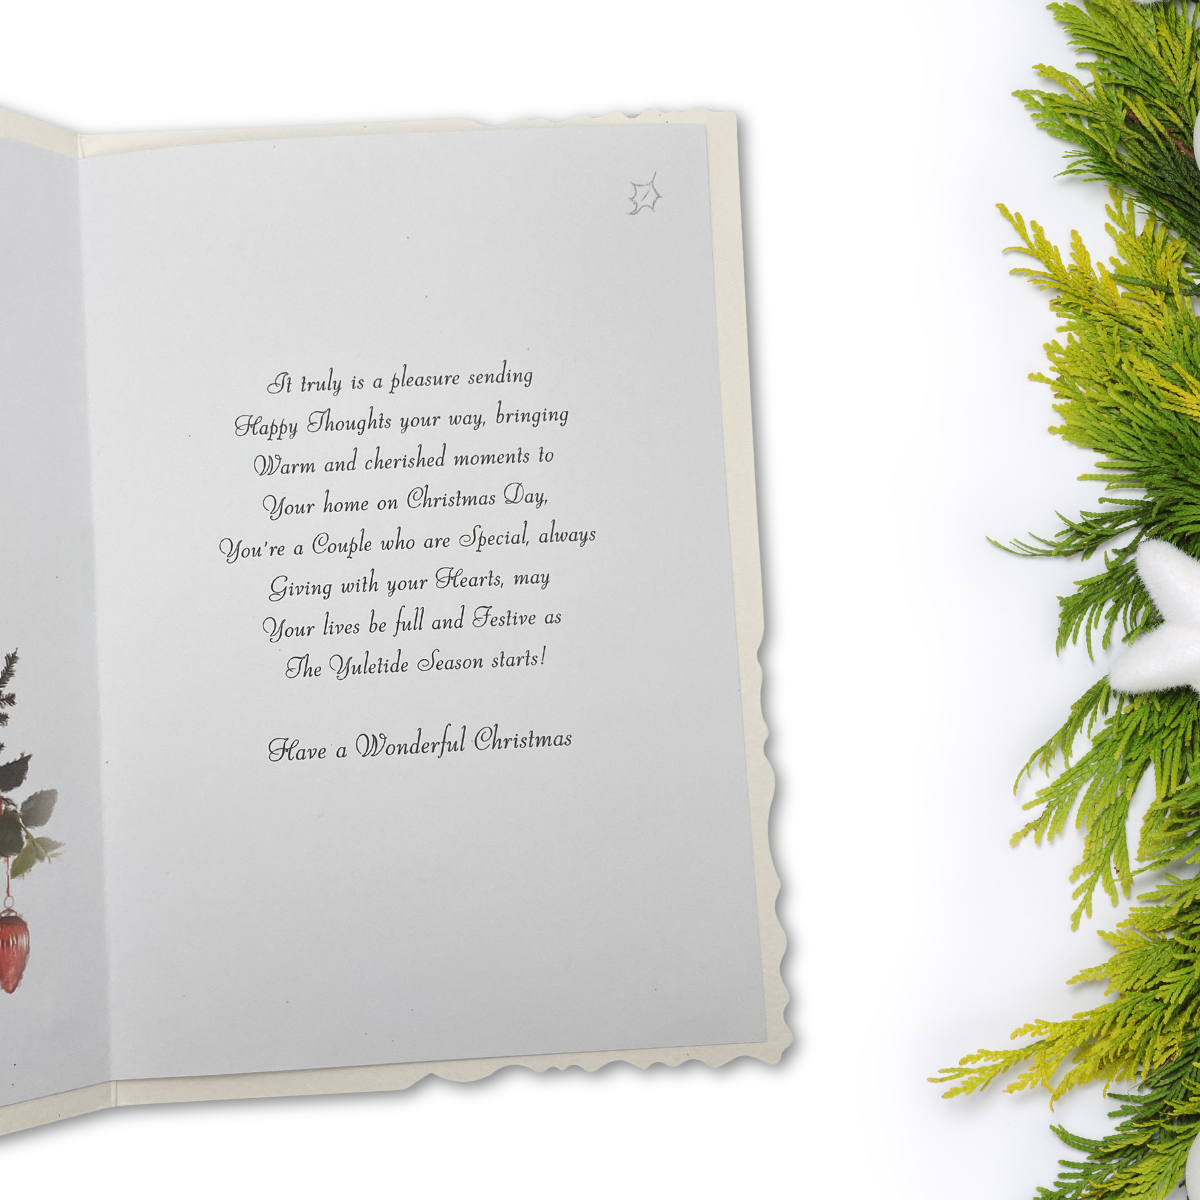 It truly is a pleasure sending
Happy Thoughts your way, bringing
Warm and cherished moments to
Your home on Christmas Day,
You're a Couple who are Special, always
Giving with your Hearts, may
Your lives be full and Festive as
The Yuletide Season starts!
Have a Wonderful Christmas